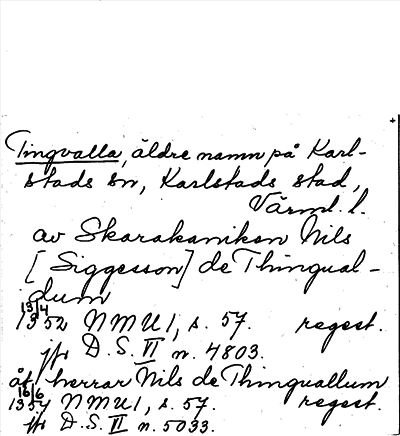 Tingvalla, äldre namn på Karl-
stads sn, Karlstads stad,
Värml. l.
av Skarakaniken Nils
[Siggesson] de Thingual-
dum
13/4
1352 NMU 1, s. 57. regest.
jfr D.S. VI n. 4803.
åt herrar Nils de Thinguallum
16/6
1354 NMU 1, s. 57. regest.
jfr D.S. VI n. 5033.